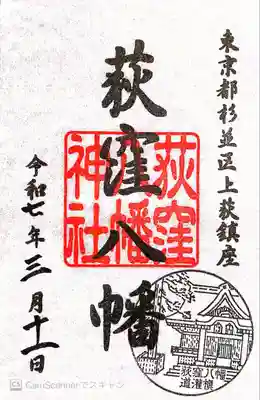 東京都杉並区上荻鎮座
荻窪八幡
荻窪八幡神社
令和七年三月十一日
荻窪八幡
道灌槇
CamScannerでスキャン